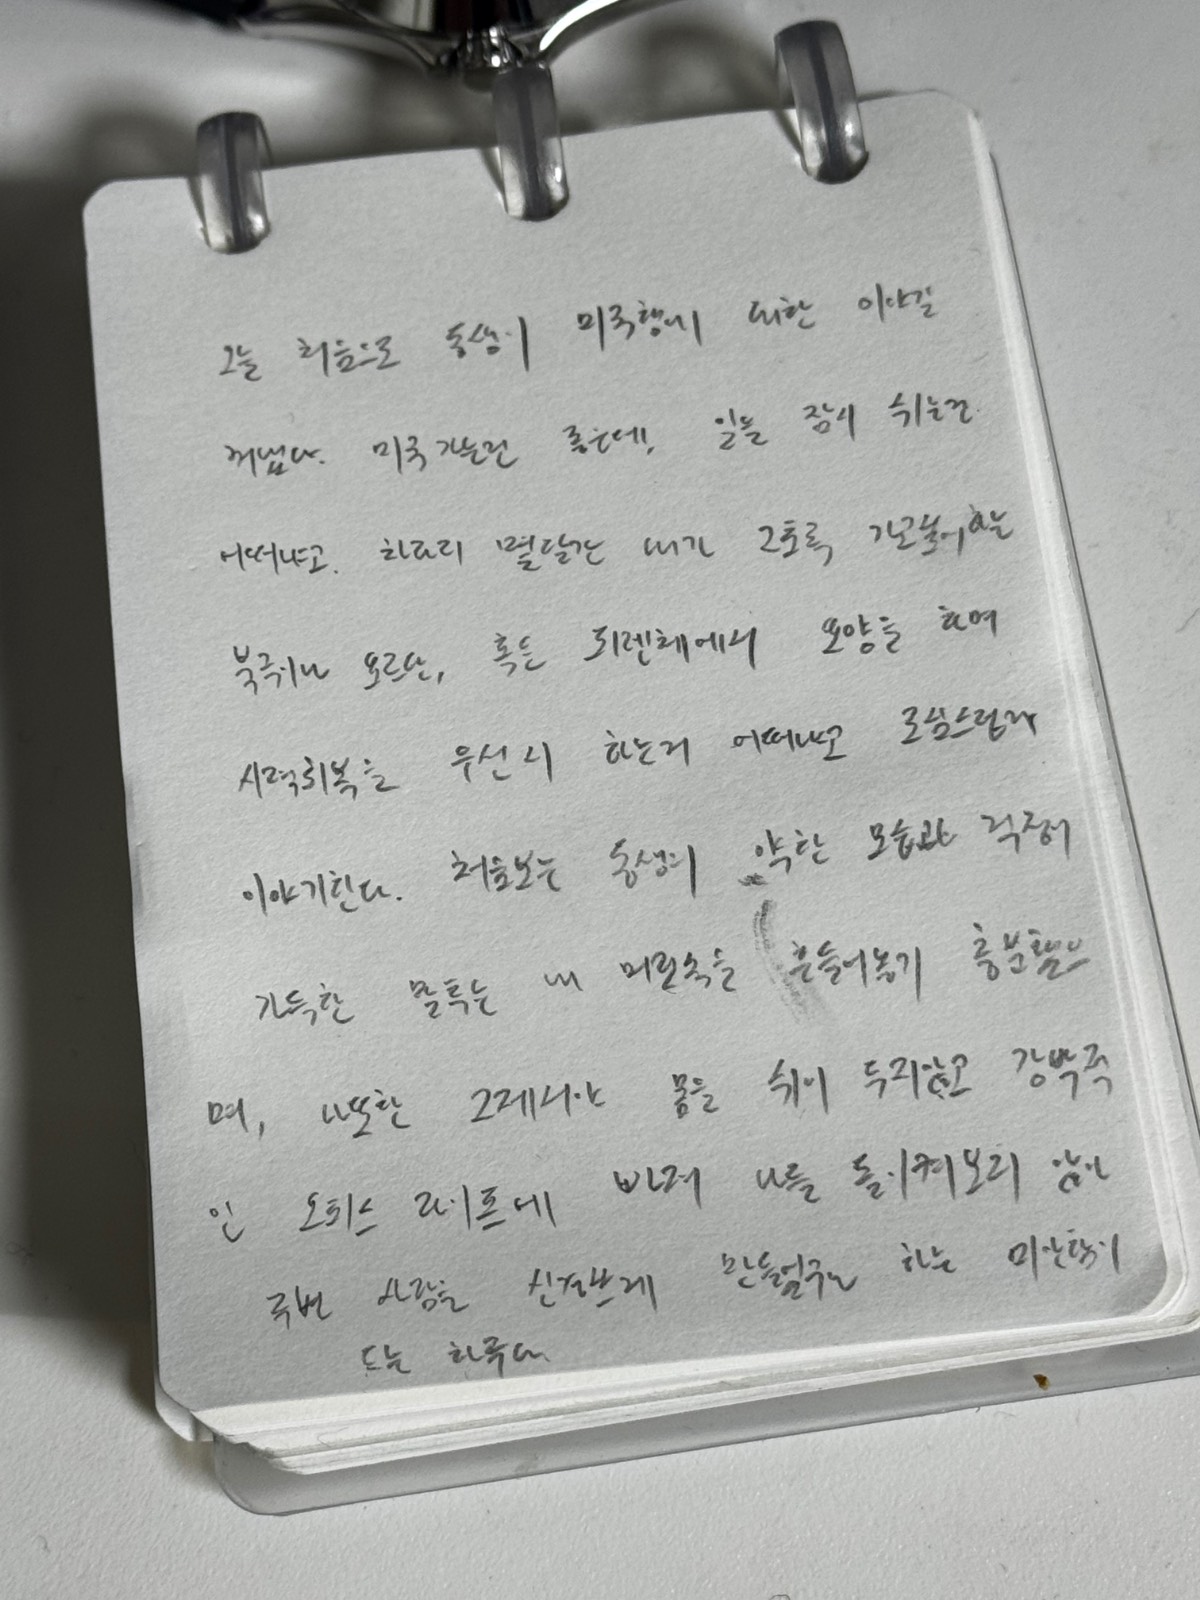 오늘 처음으로 동생이 미국행에 대한 이야길
꺼냈다. 미국가는건 좋은데, 일을 잠시 쉬는건
어떠냐고. 차라리 몇달간 내가 그토록 가고싶어하는
북극이나 요르단, 혹은 피렌체에서 요양을 하며
시력회복을 우선시 하는게 어떠냐고 조심스럽게
이야기한다. 처음보는 동생의 약한 모습과 걱정이
가득한 말투는 내 머릿속을 흔들어놓기 충분했으
며, 나또한 그제서야 몸을 쉬이 두지않고 강박적
인 오피스 라이프에 빠져 나를 돌이켜보지 않아
주변 사람을 신경쓰게 만들었구나 하는 미안함이
드는 하루다.